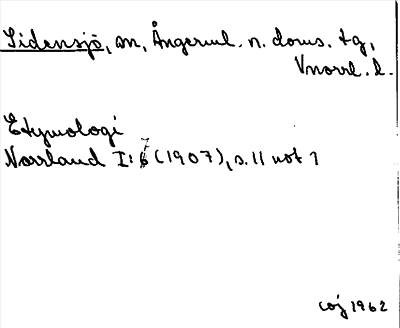 Sidensjö, sn, Ångerml. n. doms. tg,
Vnorrl. l.
Etymologi
Norrland I: 7 (1907), s. 11 not 1
coj 1962